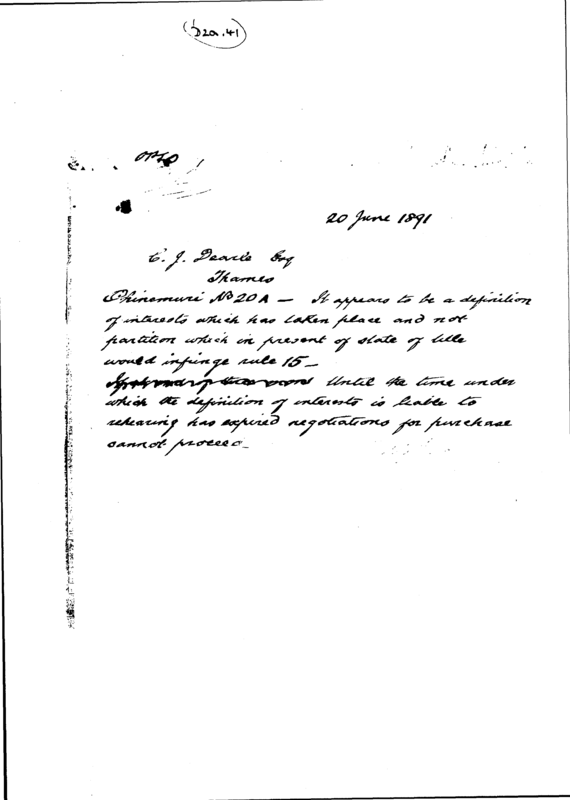 (D20.41)
20 June 1891
C. J. Dearle Esq
Thames
Ohinemuri No 20A — It appears to be a definition
of interests which has taken place and not
partition which in present of state of title
would infringe rule 15 —
Until the time under
which the definition of interests is liable to
rehearing has expired negotiations for purchase
cannot proceed —